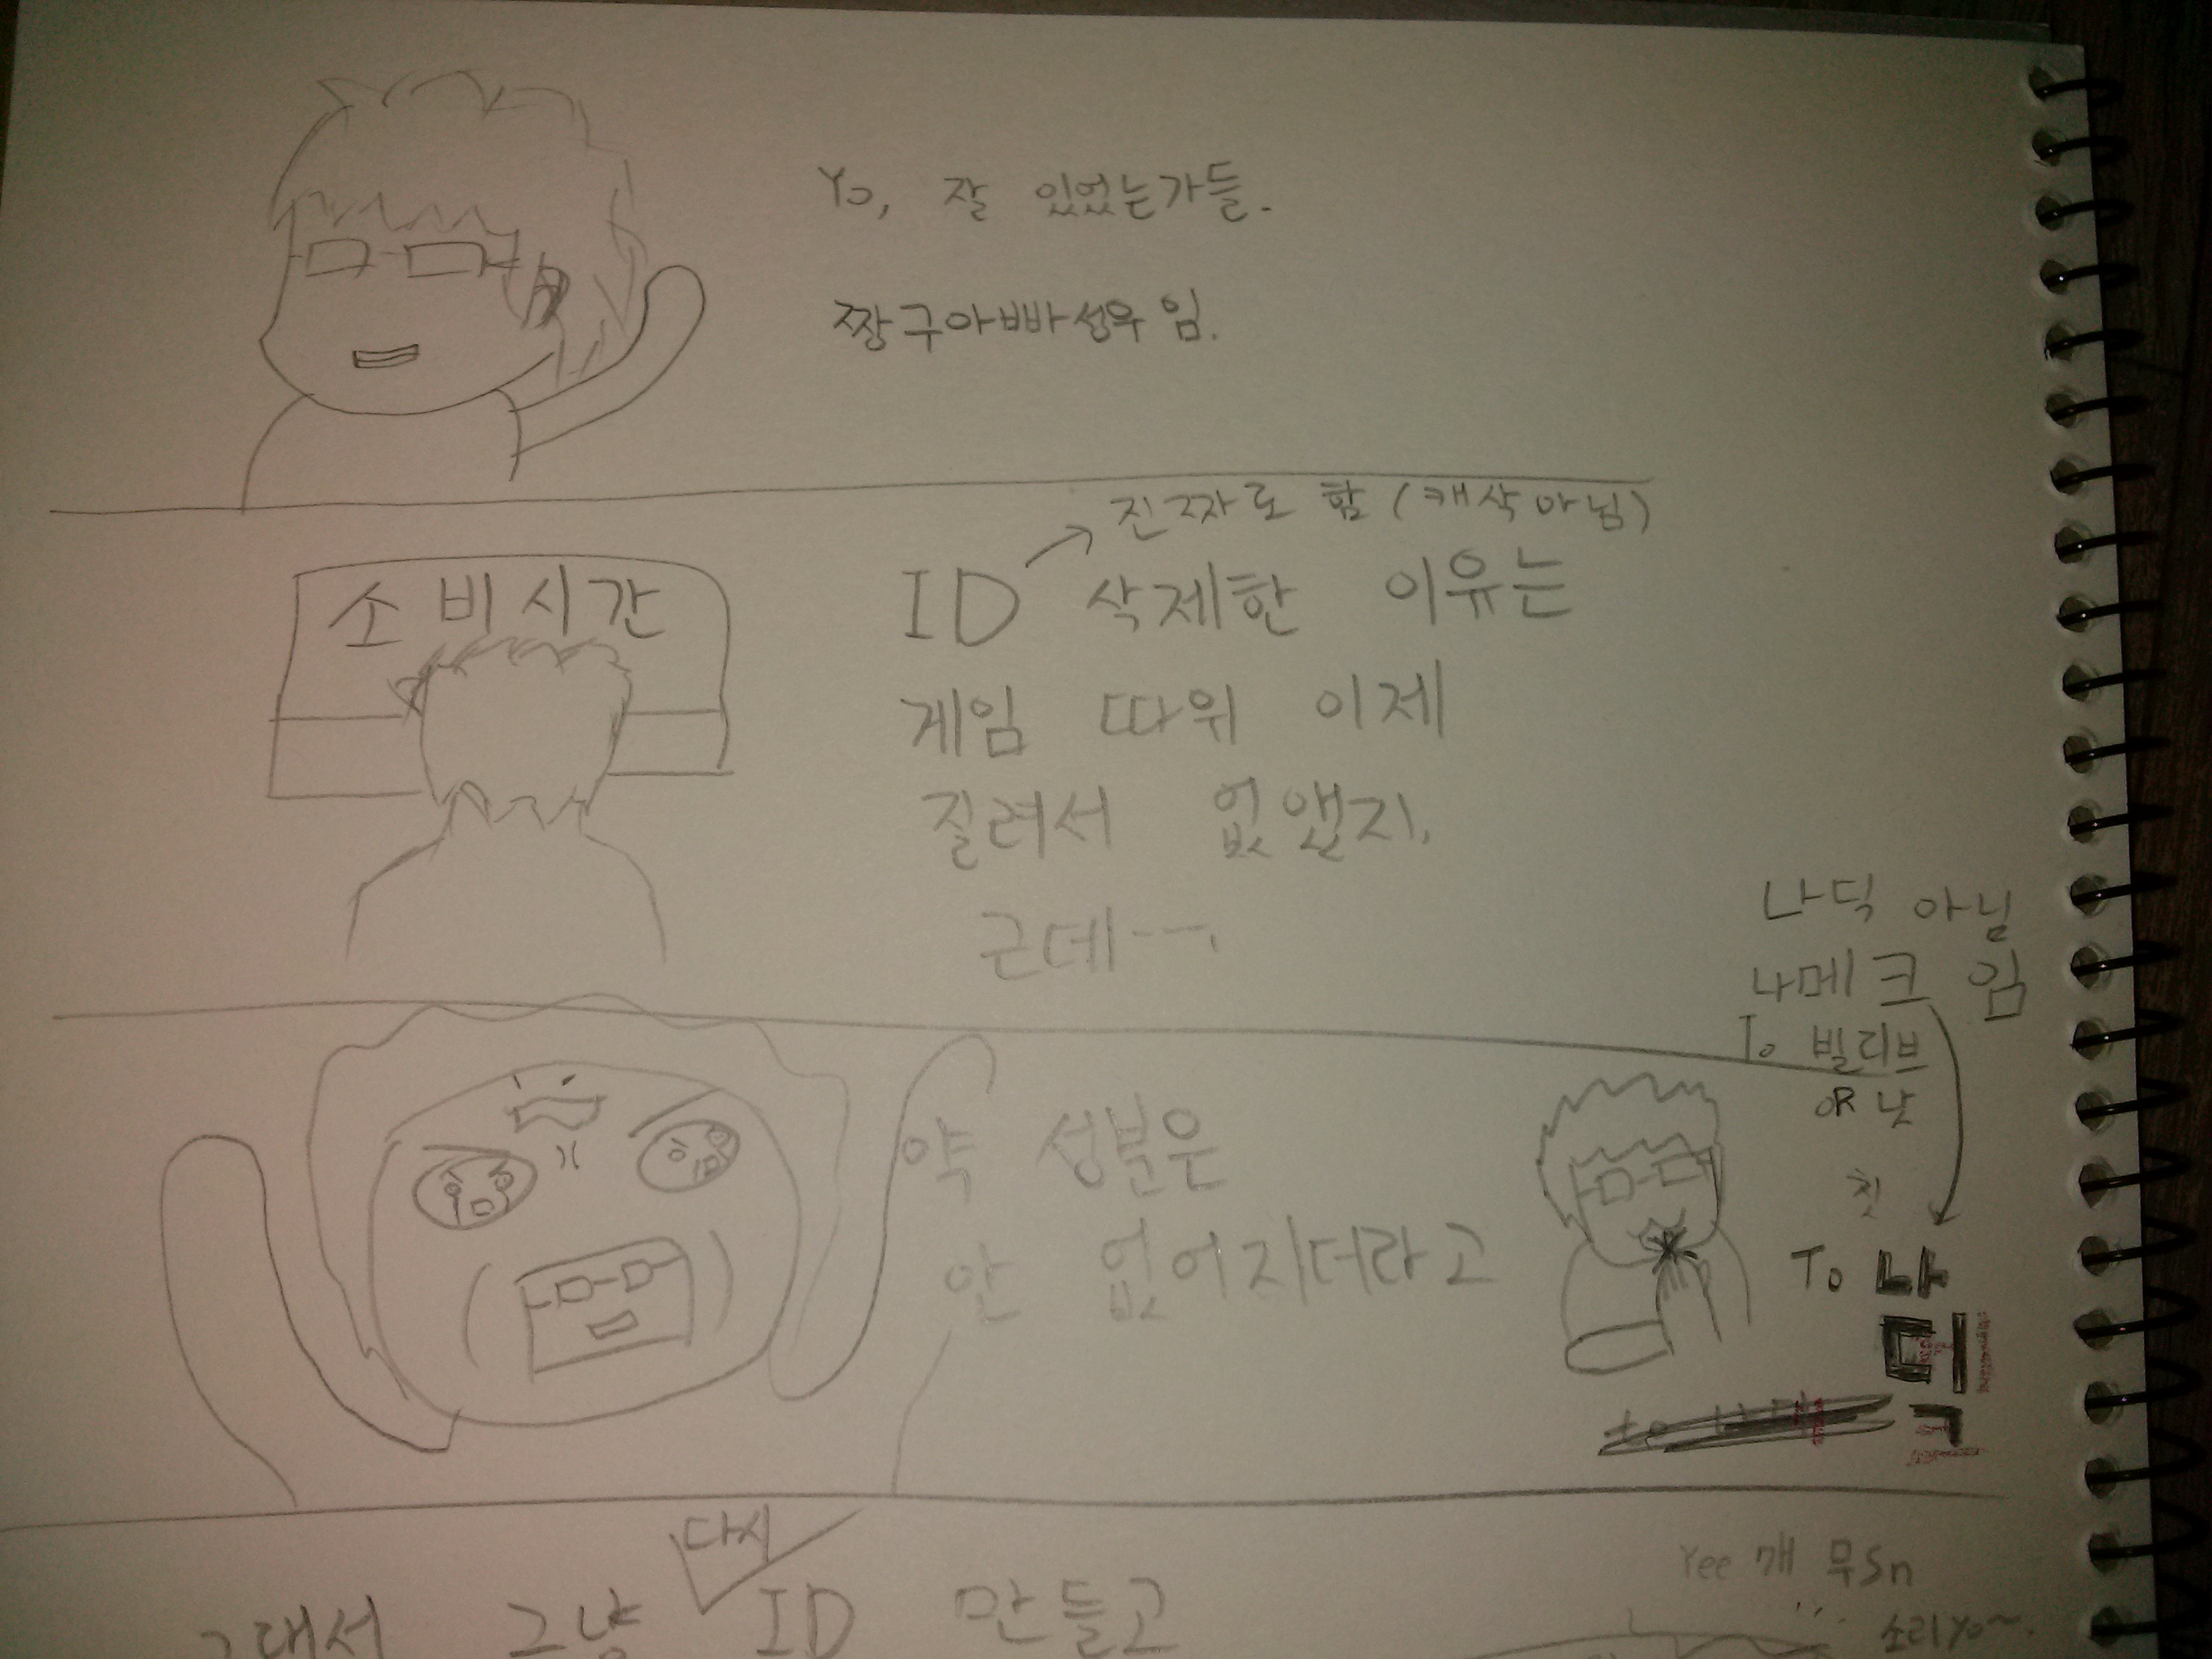 Yo, 잘 있었는가들.
짱구아빠성우임.
진짜로 함 (캐삭아님)
소비시간
ID 삭제한 이유는
게임 따위 이제
질려서 없앴지.
근데---.
나딕 아님
나메크 임
To 빌리브
OR 낫
약 성분은
안 없어지더라고
친
To 나
디
크
다시
그래서 그냥 ID 만들고
Yee 개 무Sn
소리Yo~.